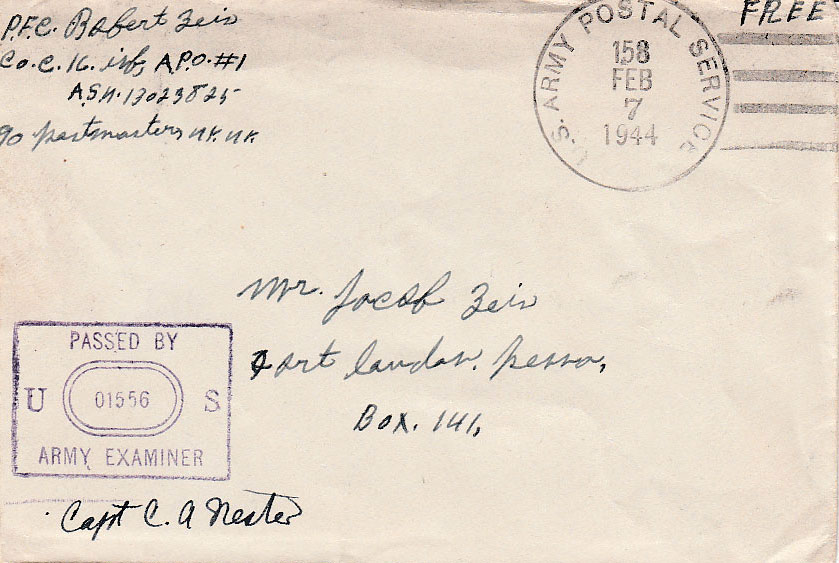 P.F.C. Robert Zeis
Co. C. 16. inf, A.P.O. #1
A.S.N. 13023825
90 postmasters n.y. n.y.
FREE
U.S. ARMY POSTAL SERVICE
158
FEB
7
1944
Mr. Jacob Zeis
Fort loudon. penna,
Box. 141,
PASSED BY
U 01556 S
ARMY EXAMINER
Capt C. A Nester